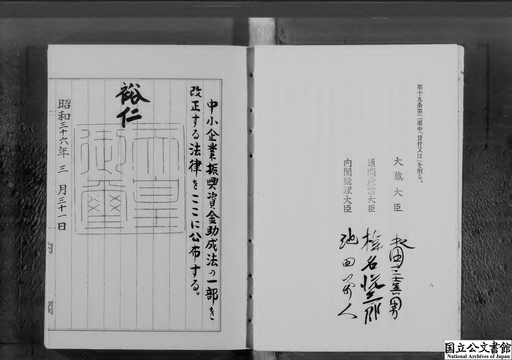 第十九条第二項中「貸付又は」を削る。
大蔵大臣 水田三喜男
通商産業大臣 椎名悦三郎
内閣総理大臣 池田勇人
中小企業振興資金助成法の一部を
改正する法律をここに公布する。
裕仁
天皇
御璽
昭和三十六年三月三十一日
内閣
国立公文書館
National Archives of Japan